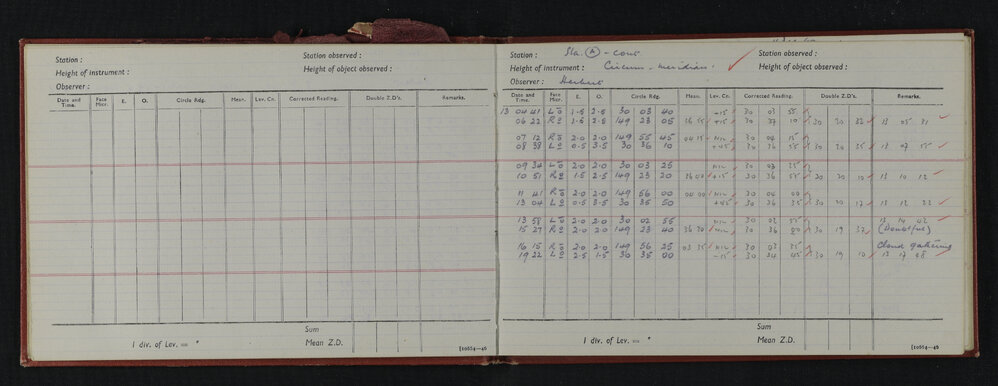 Station :
Station observed :
Height of instrument :
Height of object observed :
Observer :
Date and Time. Face Micr. E. O. Circle Rdg. Mean. Lev. Cn. Corrected Reading. Double Z.D's. Remarks.
Sum
1 div. of Lev. = "
Mean Z.D.
[10664—46
Station : Sta. (A) - cont
Station observed :
Height of instrument : Circum-meridian :
Height of object observed :
Observer : Herbert
Date and Time. Face Micr. E. O. Circle Rdg. Mean. Lev. Cn. Corrected Reading. Double Z.D's. Remarks.
13 04 41 L 1.5 2.5 30 03 40 +15 30 03 55
06 22 R 1.5 2.5 149 23 05 +15 30 30 13 05 31
07 12 R 2.0 2.0 149 55 45 04 15 NIL 30 04 15
08 38 L 0.5 3.5 30 36 10 +45 30 36 55 30 20 35 13 07 55
09 34 L 2.0 2.0 30 03 25 NIL 30 03 25
10 51 R 1.5 2.5 149 23 20 +15 30 36 55 20 10 13 10 12
11 41 R 2.0 2.0 149 56 00 04 00 NIL 30 04 00
13 04 L 0.5 3.5 30 35 50 +45 30 36 35 30 20 17 13 12 22
13 58 L 2.0 2.0 30 02 55 NIL 30 02 55 13 14 42
15 27 R 2.0 2.0 149 23 40 36 20 NIL 30 36 30 19 37 (Doubtful)
16 15 R 2.0 2.0 149 56 25 03 35 NIL 30 03 35 Cloud gathering
19 22 L 2.5 1.5 30 35 00 -15 30 34 45 30 19 10 13 17 48
Sum
1 div. of Lev. = "
Mean Z.D.
[10664—46